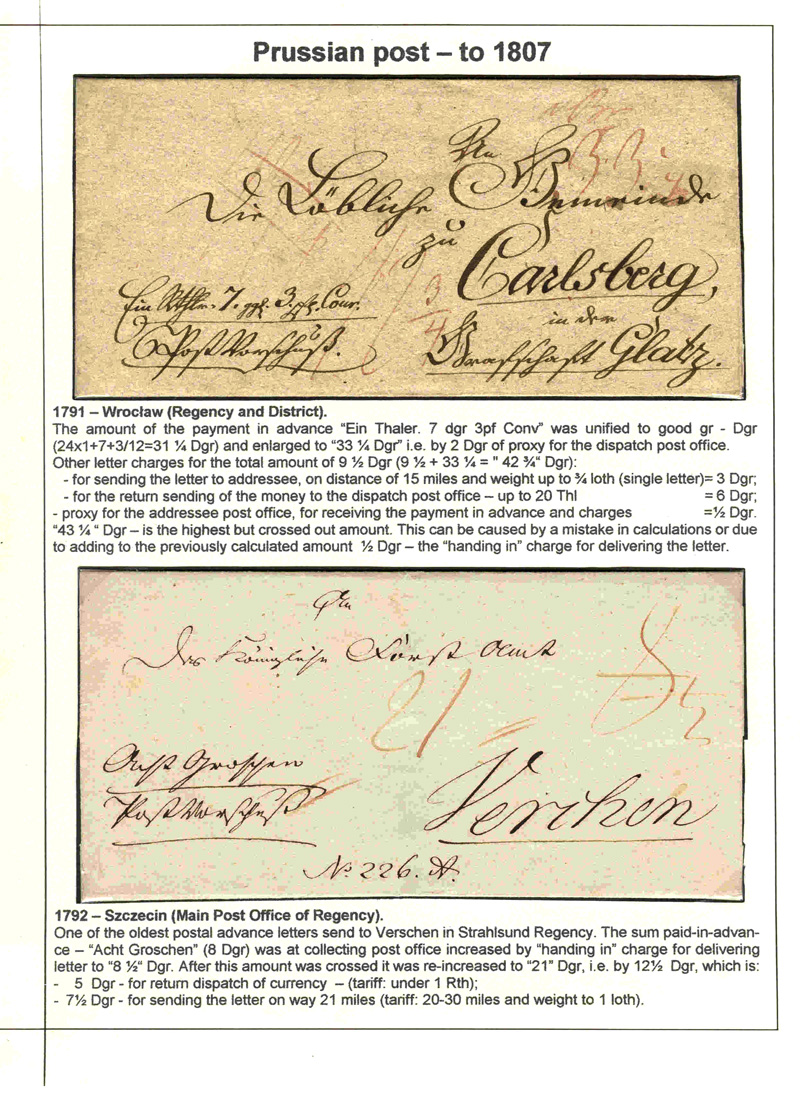 Prussian post – to 1807
An
Die Löbliche Gemeinde
zu
Carlsberg,
in der
Grafschaft Glatz.
Ein Rthlr. 7. ggl. 3. pf. Cour.
Post Vorschuß.
3
4
1791 – Wrocław (Regency and District).
The amount of the payment in advance “Ein Thaler. 7 dgr 3pf Conv” was unified to good gr - Dgr
(24x1+7+3/12=31 ¼ Dgr) and enlarged to “33 ¼ Dgr” i.e. by 2 Dgr of proxy for the dispatch post office.
Other letter charges for the total amount of 9 ½ Dgr (9 ½ + 33 ¼ = " 42 ¾“ Dgr):
- for sending the letter to addressee, on distance of 15 miles and weight up to ¾ loth (single letter)= 3 Dgr;
- for the return sending of the money to the dispatch post office – up to 20 Thl = 6 Dgr;
- proxy for the addressee post office, for receiving the payment in advance and charges =½ Dgr.
“43 ¼ “ Dgr – is the highest but crossed out amount. This can be caused by a mistake in calculations or due
to adding to the previously calculated amount ½ Dgr – the “handing in” charge for delivering the letter.
An
Das Königliche Först Amt
21
Acht Groschen
Post Vorschuß
Verchen
No. 226. A.
1792 – Szczecin (Main Post Office of Regency).
One of the oldest postal advance letters send to Verschen in Strahlsund Regency. The sum paid-in-advan-
ce – “Acht Groschen” (8 Dgr) was at collecting post office increased by “handing in” charge for delivering
letter to “8 ½“ Dgr. After this amount was crossed it was re-increased to “21” Dgr, i.e. by 12½ Dgr, which is:
- 5 Dgr - for return dispatch of currency – (tariff: under 1 Rth);
- 7½ Dgr - for sending the letter on way 21 miles (tariff: 20-30 miles and weight to 1 loth).